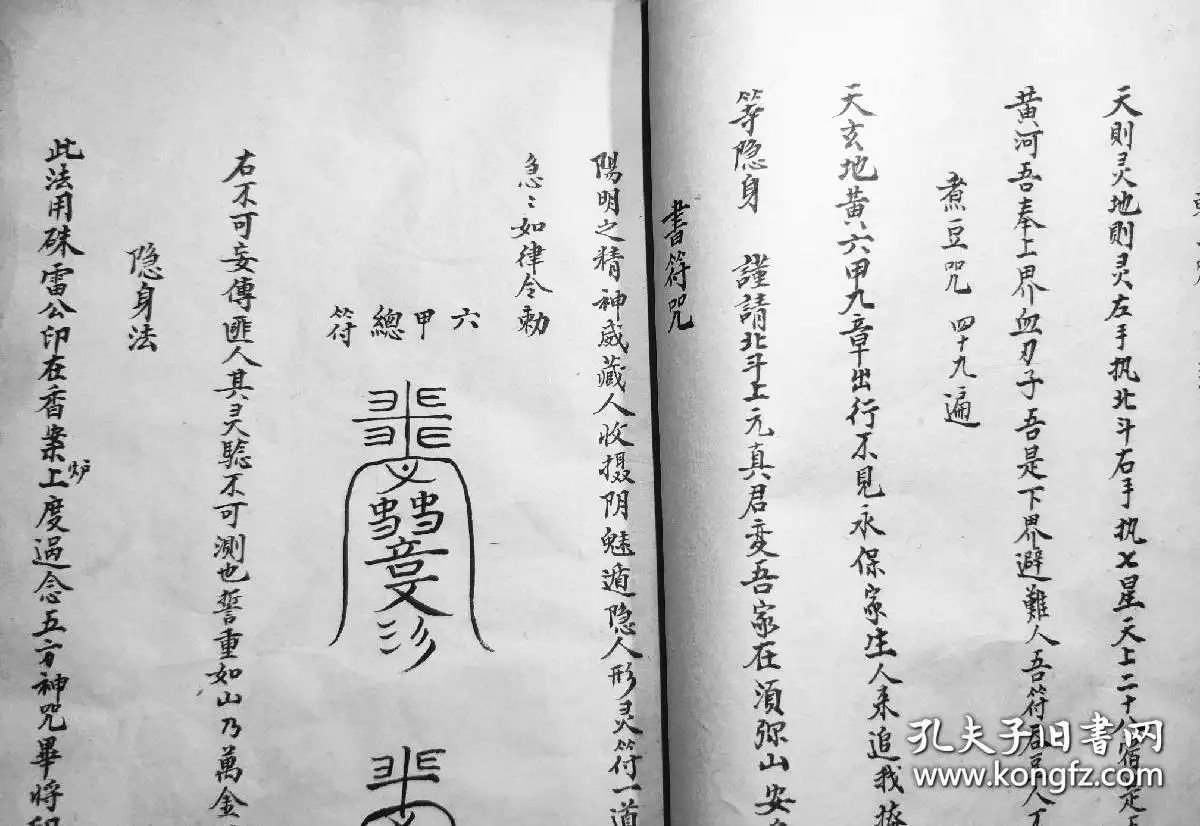 天則灵地則灵左手执北斗右手执七星天上二十八宿
黄河吾奉上界血刃子吾是下界避難人吾符
煮豆咒 四十九遍
天玄地黄六甲九章出行不見永保家生人来追我
等隐身 謹請北斗上元真君变吾家在須弥山安
書符咒
陽明之精神威藏人收摄阴魅遁隐人形灵符一道
急〻如律令勅
六甲總符
右不可妄傳匪人其灵騐不可測也誓重如山乃萬金
隐身法
此法用硃雷公印在香案上炉度過念五方神咒畢將印
孔夫子旧書网
www.kongfz.com